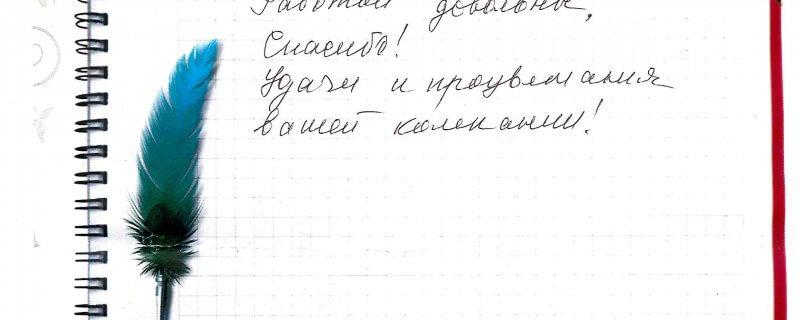 Работой довольны,
Спасибо!
Удачи и процветания
вашей компании!